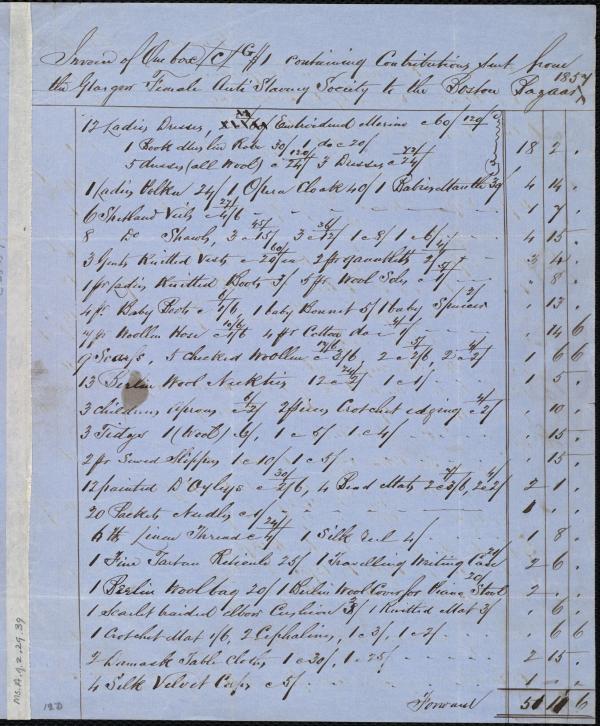 Invoice of One box /C/G/#1 containing Contributions sent from
the Glasgow Female Anti Slavery Society to the Boston Bazaar 1857
12 Ladies Dresses, Embroidered Merino @ 60/ 120/
1 Book Muslin Robe 30/ 1 do @ 20/
5 dresses (all Wool) @ 24/ 120/ 3 Dresses @ 24/ 72/ 18 2 .
1 Ladies Polka 24/ 1 Opera Cloak 40/ 1 Babies Mantle 30/ 4 14 .
6 Shetland Veils @ 4/6 27/ 1 7 .
8 Do Shawls, 3 @ 15/ 45/ 3 @ 12/ 36/ 1 @ 8/ 1 @ 6/ 4 15 .
3 Gents Knitted Vests @ 20/ 60/ 2 pr gauntlets 2/ 4/ 3 4 .
1 pr Ladies Knitted Boots 3/ 5 pr Wool Soles @ 1/ 5/ . 8 .
4 pr Baby Boots @ 1/6 6/ 1 baby Bonnet 5/ 1 baby Spencer 2/ . 13 .
7 pr Woollen Hose @ 1/6 10/6 4 pr Cotton do @ 1/ 4/ . 14 6
9 Scarfs, 5 checked Woollen @ 3/6 17/6, 2 @ 2/6 5/, 2 @ 2/ 4/ 1 6 6
13 Berlin Wool Neckties 12 @ 2/ 24/ 1 @ 1/ 1 5 .
3 childrens aprons @ 2/ 6/ 2 pieces Crotchet edging @ 2/ 4/ . 10 .
3 Tidys 1 (Wool) 6/, 1 @ 5/ 1 @ 4/ . 15 .
2 pr Sewed Slippers 1 @ 10/ 1 @ 5/ . 15 .
12 painted D'Oyleys @ 2/6 30/, 4 Bead Mats 2 @ 3/6 7/, 2 @ 2/ 4/ 2 1 .
20 Packets Needles @ 1/ 1 . .
6 lb Linen Thread @ 4/ 24/ 1 Silk Veil 4/ 1 8 .
1 Fine Tartan Reticule 25/ 1 Travelling Writing Case 2 6 .
1 Berlin Wool bag 20/ 1 Berlin Wool Cover for Piano Stool 20/ 2 . .
1 Scarlet braided elbow Cushion 3/ 1 Knitted Mat 3/ . 6 .
1 Crotchet Mat 1/6, 2 Cephalines, 1 @ 3/, 1 @ 2/ . 6 6
2 damask Table cloths 1 @ 30/, 1 @ 25/ 2 15 .
4 Silk Velvet Caps @ 5/ 1 . .
Forward 51 11 6
Ms.A.9.2.29.39